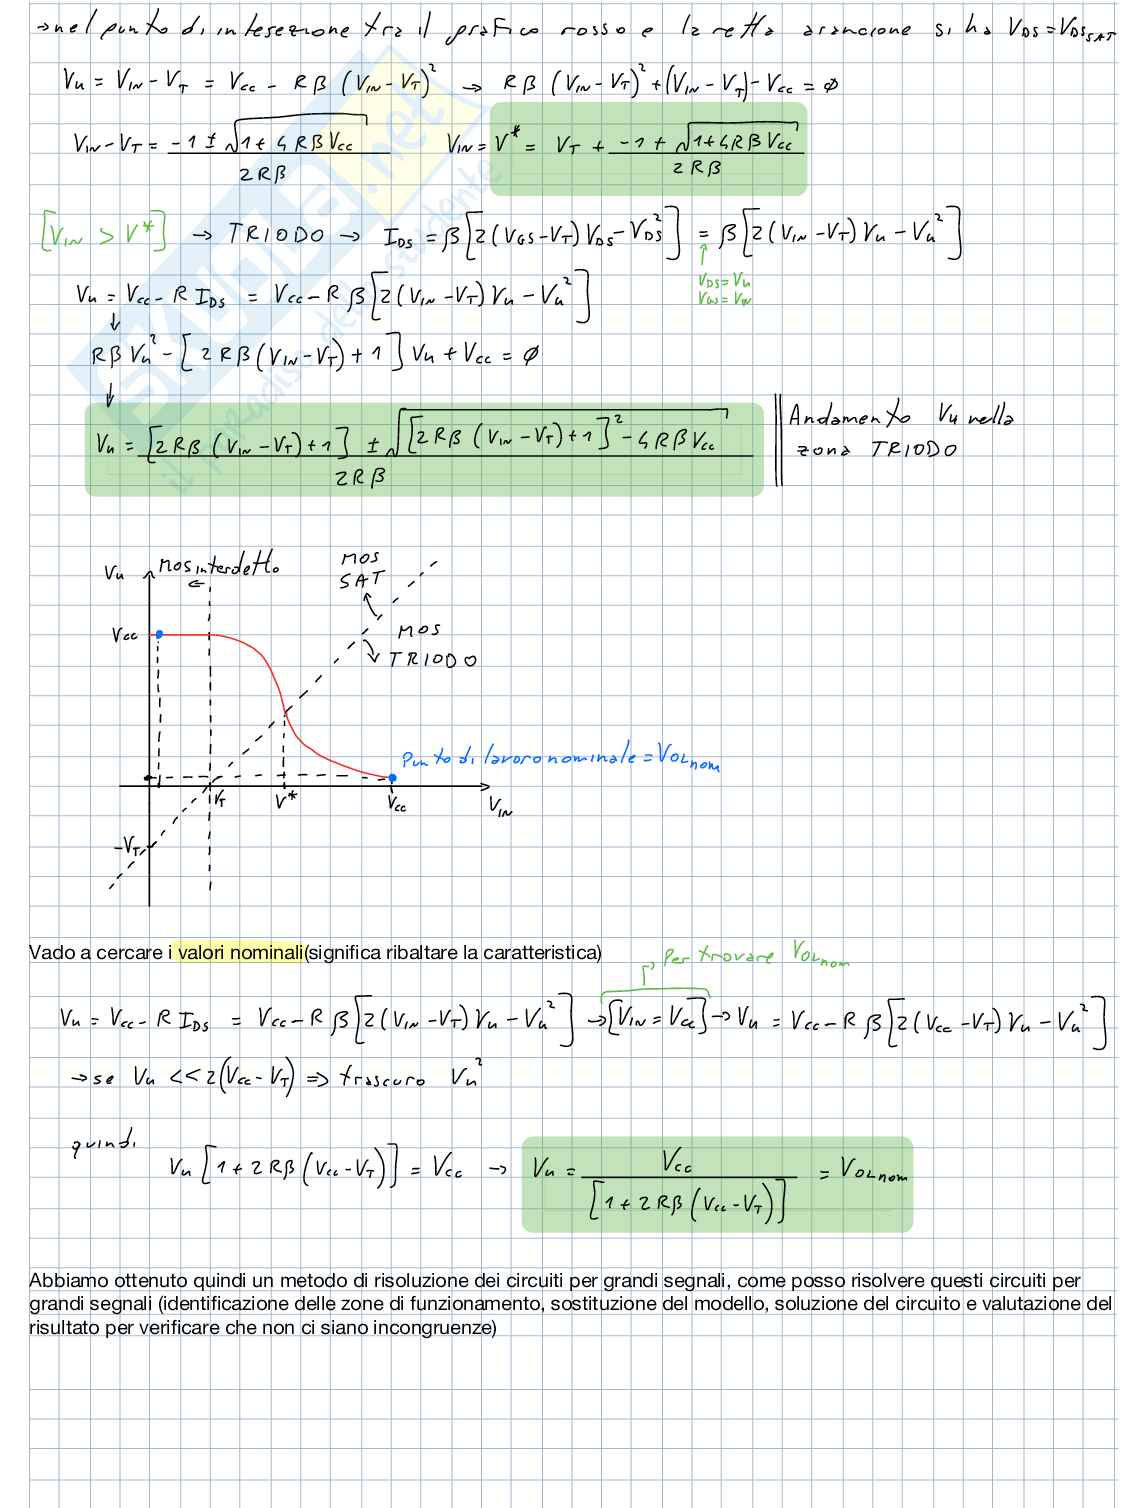 →nel punto di intesezione tra il grafico rosso e la retta arancione si ha V_DS = V_DS_SAT
V_u = V_IN - V_T = V_CC - Rβ (V_IN - V_T)² → Rβ (V_IN - V_T)² + (V_IN - V_T) - V_CC = ∅
V_IN - V_T = (-1 ± √(1 + 4RβV_CC)) / 2Rβ    V_IN = V* = V_T + (-1 + √(1 + 4RβV_CC)) / 2Rβ
[V_IN > V*] → TRIODO → I_DS = β[2(V_GS - V_T) V_DS - V_DS²] = β[2(V_IN - V_T) V_u - V_u²]
↑
V_DS = V_u
V_GS = V_IN
V_u = V_CC - R I_DS = V_CC - Rβ[2(V_IN - V_T) V_u - V_u²]
↓
RβV_u² - [2Rβ(V_IN - V_T) + 1] V_u + V_CC = ∅
↓
V_u = ([2Rβ(V_IN - V_T) + 1] ± √([2Rβ(V_IN - V_T) + 1]² - 4RβV_CC)) / 2Rβ
Andamento V_u nella
zona TRIODO
V_u
MOS interdetto
←
MOS
SAT
V_CC
MOS
TRIODO
Punto di lavoro nominale = V_OL_nom
V_T
V*
V_CC
V_IN
-V_T
Vado a cercare i valori nominali(significa ribaltare la caratteristica)
Per trovare V_OL_nom
V_u = V_CC - R I_DS = V_CC - Rβ[2(V_IN - V_T) V_u - V_u²] → [V_IN = V_CC] → V_u = V_CC - Rβ[2(V_CC - V_T) V_u - V_u²]
→se V_u << 2(V_CC - V_T) => trascuro V_u²
quindi
V_u [1 + 2Rβ(V_CC - V_T)] = V_CC → V_u = V_CC / [1 + 2Rβ(V_CC - V_T)] = V_OL_nom
Abbiamo ottenuto quindi un metodo di risoluzione dei circuiti per grandi segnali, come posso risolvere questi circuiti per
grandi segnali (identificazione delle zone di funzionamento, sostituzione del modello, soluzione del circuito e valutazione del
risultato per verificare che non ci siano incongruenze)